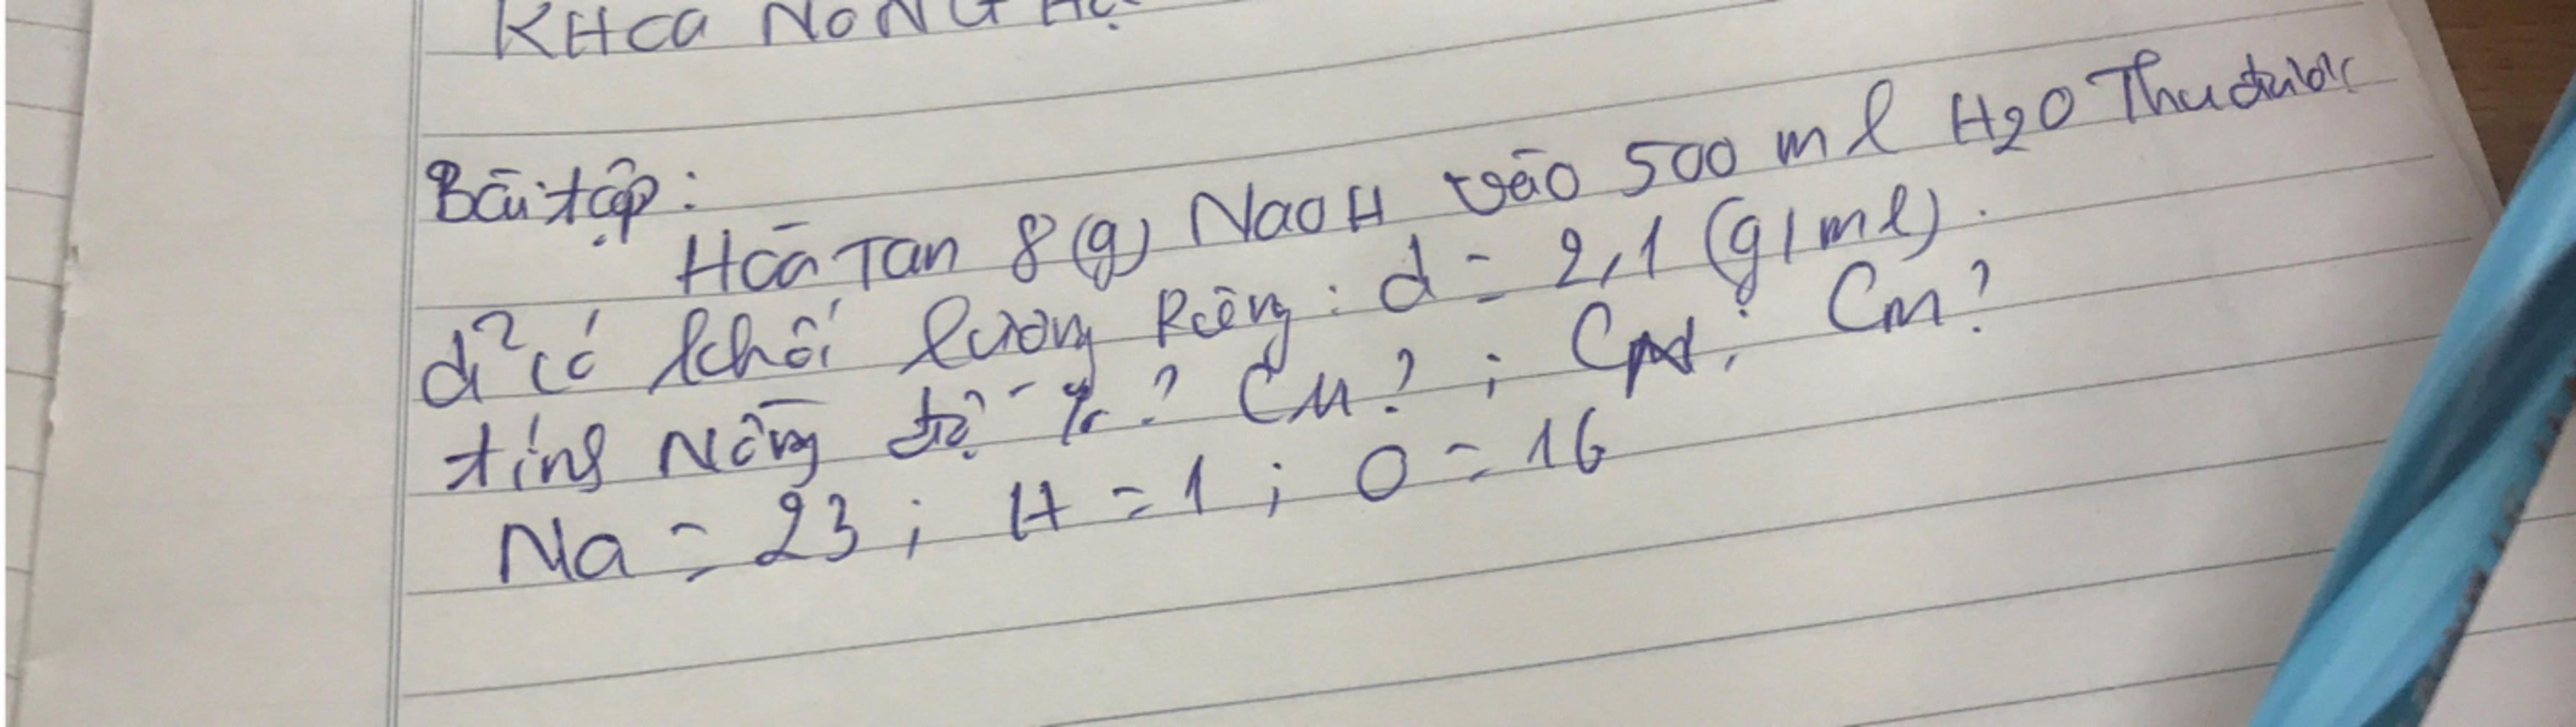 KHCa NoNG
Bài tập:
Hòa Tan 8 (g) NaOH vào 500 ml H2O Thu được
d² có khối lượng Riêng: d = 2,1 (g/ml).
tính Nồng độ %? CM? ; CN; Cm?
Na = 23 ; H = 1 ; O = 16